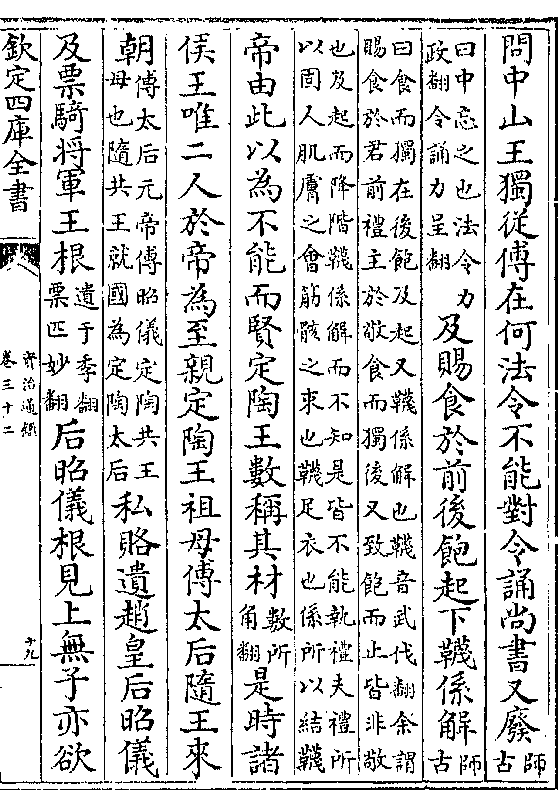 問中山王獨從傅在何法令不能對令誦尚書又廢師古
曰中忘之也法令力政翻令誦力呈翻及賜食於前後飽起下韈係解師古
曰食而獨在後飽及起又韈係解也韈音武伐翻余謂賜食於君前禮主於敬食而獨後又致飽而止皆非敬
也及起而降階韈係解而不知是皆不能執禮夫禮所以固人肌膚之會筋骸之束也韈足衣也係所以結韈
帝由此以為不能而賢定陶王數稱其材數所角翻是時諸
侯王唯二人於帝為至親定陶王祖母傅太后隨王來
朝傅太后元帝傅昭儀定陶共王母也隨共王就國為定陶太后私賂遺趙皇后昭儀
及票騎將軍王根遺于季翻票匹妙翻后昭儀根見上無子亦欲
欽定四庫全書
資治通鑑
卷三十二
十九